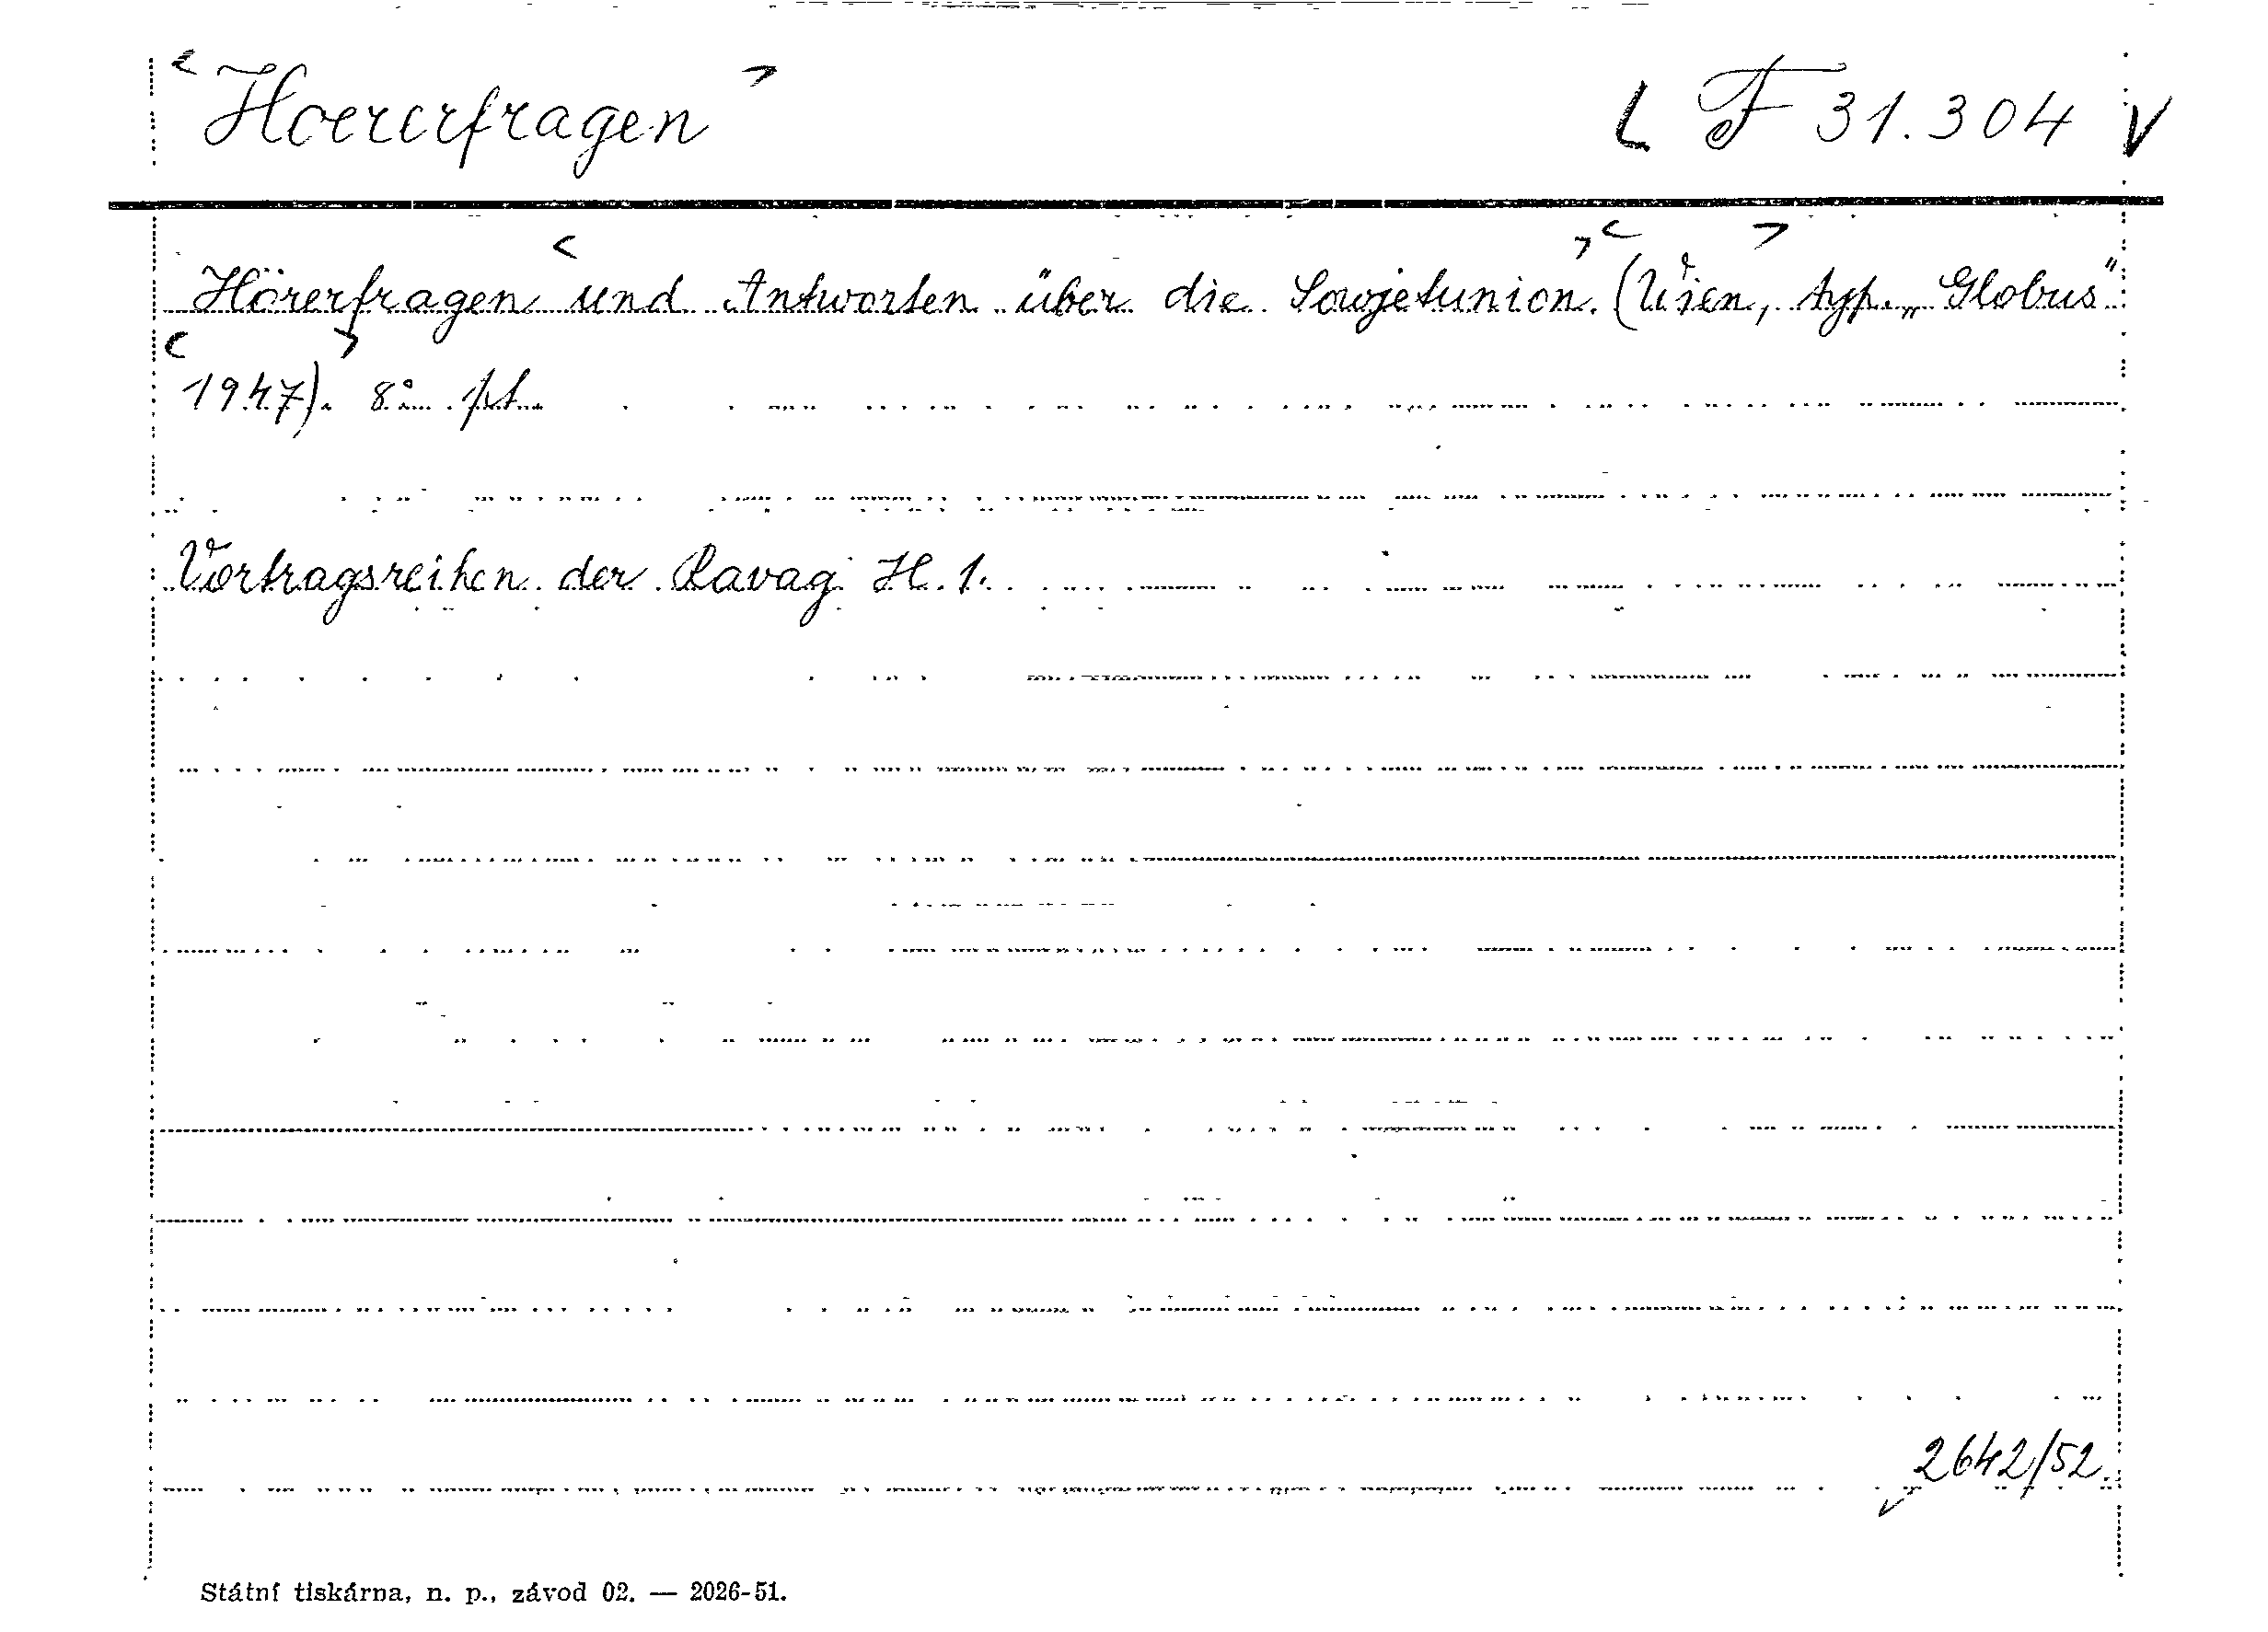 Hoererfragen F 31.304
Hörerfragen und Antworten über die Sowjetunion. (Wien, typ. „Globus"
1947). 8° pt.
Vortragsreihen der Ravag H. 1.
2642/52.
Státní tiskárna, n. p., závod 02. — 2026-51.